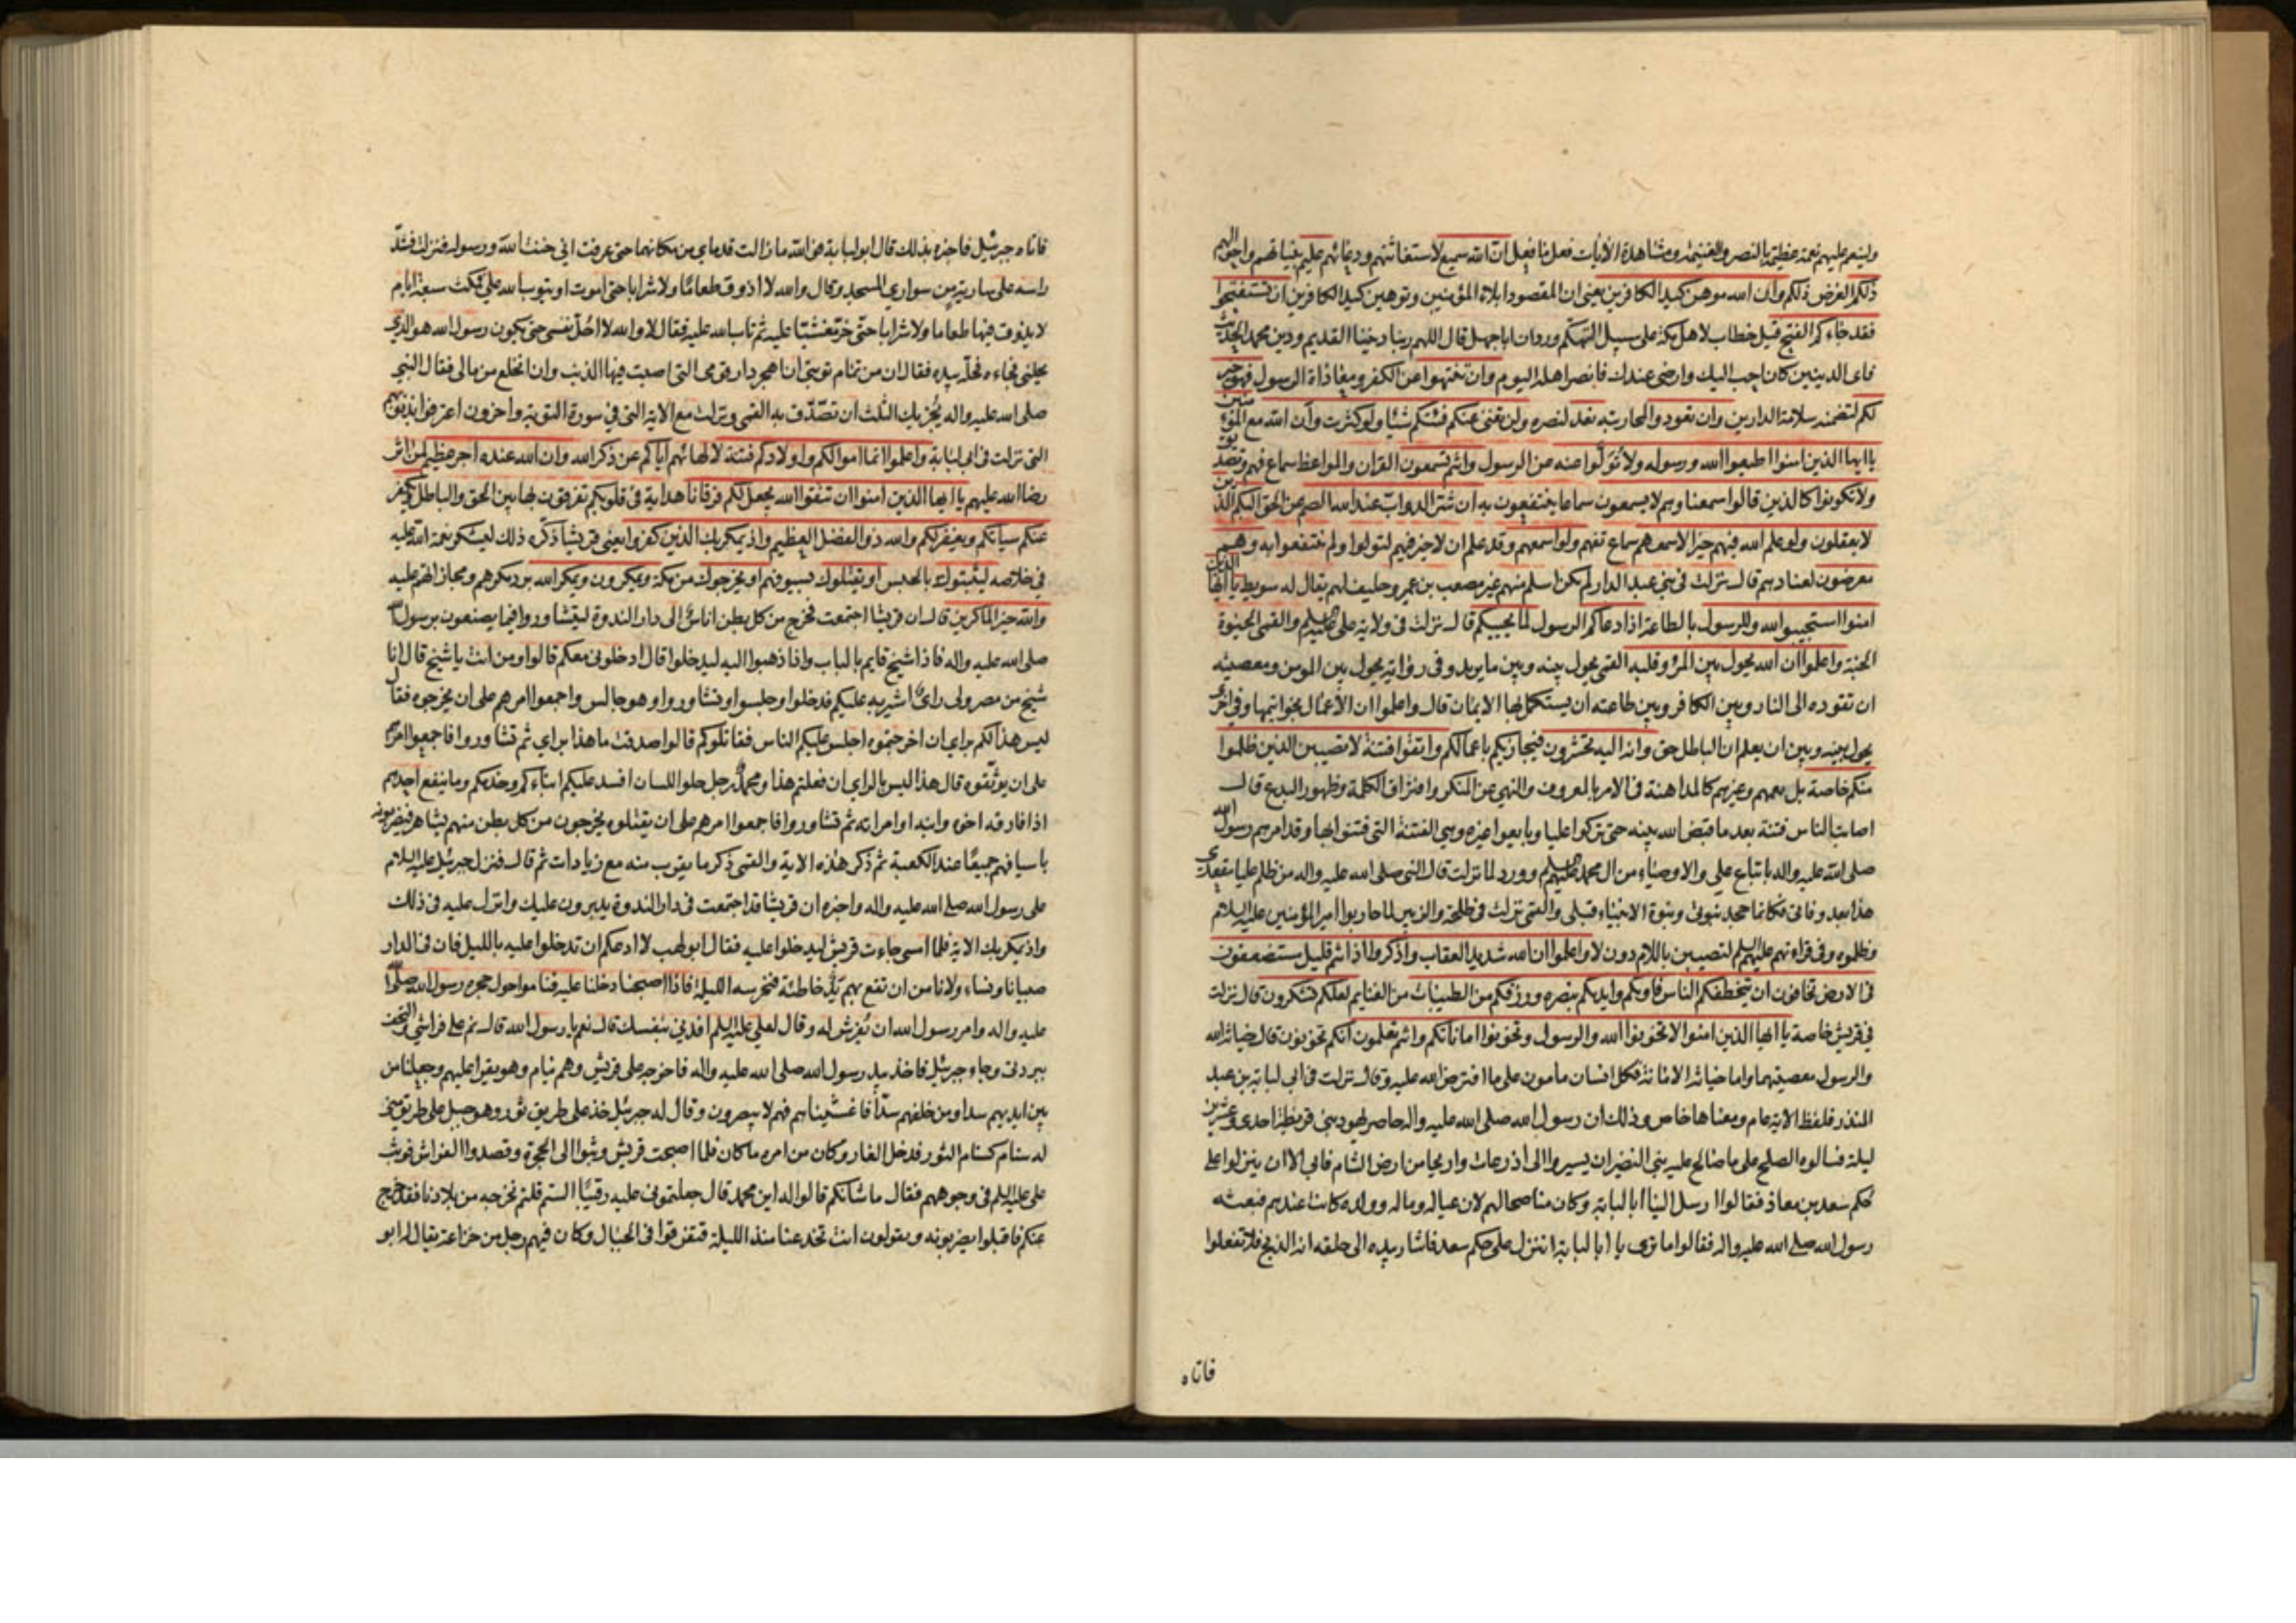 ولينعم عليهم نعمة عظيمة بالنصر والغنيمة ومشاهدة الآيات فعل ما فعل ان الله سميع لاستغاثتهم ودعائهم عليم بنياتهم واحوالهم
ذلكم الغرض ذلكم وان الله موهن كيد الكافرين يعني ان المقصود ابلاء المؤمنين وتوهين كيد الكافرين ان تستفتحوا
فقد جاءكم الفتح قيل خطاب لاهل مكة على سبيل التهكم وروي ان اباجهل قال اللهم ربنا ديننا القديم ودين محمد الحديث
فاي الدينين كان احب اليك وارضى عندك فانصر اهله اليوم وان تنتهوا عن الكفر ومعاداة الرسول فهو خير
لكم لتضمنه سلامة الدارين وان تعودوا لمحاربته نعد لنصره ولن تغني عنكم فئتكم شيئا ولو كثرت وان الله مع المؤمنين
يا ايها الذين امنوا اطيعوا الله ورسوله ولا تولوا عنه عن الرسول وانتم تسمعون القران والمواعظ سماع فهم وتصديق
ولا تكونوا كالذين قالوا سمعنا وهم لا يسمعون سماعا ينتفعون به ان شر الدواب عند الله الصم عن الحق البكم الذين
لا يعقلون ولو علم الله فيهم خيرا لاسمعهم سماع تفهم ولو اسمعهم وقد علم ان لا خير فيهم لتولوا ولم ينتفعوا به وهم
معرضون لعنادهم قال نزلت في بني عبد الدار لم يكن اسلم منهم غير مصعب بن عمير وحليف لهم يقال له سويط يا ايها الذين
امنوا استجيبوا لله وللرسول بالطاعة اذا دعاكم الرسول لما يحييكم قال نزلت في ولاية علي عليه السلم والقمي الحيوة
الجنة واعلموا ان الله يحول بين المرؤ وقلبه القمي يحول بينه وبين ما يريد وفي رواية يحول بين المومن ومعصيته
ان تقوده الى النار وبين الكافر وبين طاعته ان يستكمل بها الايمان قال واعلموا ان الاعمال بخواتيمها وفي اخرى
يحول بينه وبين ان يعلم ان الباطل حق وانه اليه تحشرون فيجازيكم باعمالكم واتقوا فتنة لا تصيبن الذين ظلموا
منكم خاصة بل يعمهم وغيرهم كالمداهنة في الامر بالمعروف والنهي عن المنكر وافتراق الكلمة وظهور البدع قال
اصابت الناس فتنة بعد ما قبض الله نبيه حتى تركوا عليا وبايعوا غيره وهي الفتنة التي فتنوا بها وقد امرهم رسول الله
صلى الله عليه واله باتباع علي والاوصياء من ال محمد عليهم السلم وورد لما نزلت قال النبي صلى الله عليه واله من ظلم عليا مقعدي
هذا بعد وفاتي فكانما جحد نبوتي ونبوة الانبياء قبلي والقمي نزلت في طلحة والزبير لما حاربوا امير المؤمنين عليه السلام
وظلموه وفي قراءتهم عليهم السلم لتصيبن باللام دون لا واعلموا ان الله شديد العقاب واذكروا اذ انتم قليل مستضعفون
في الارض تخافون ان يتخطفكم الناس فاويكم وايدكم بنصره ورزقكم من الطيبات من الغنايم لعلكم تشكرون قال نزلت
في قريش خاصة يا ايها الذين امنوا لا تخونوا الله والرسول وتخونوا اماناتكم وانتم تعلمون انكم تخونون قال خيانة الله
والرسول معصيتهما واما خيانة الامانة فكل انسان مامون على ما افترض الله عليه وقال نزلت في ابي لبابة بن عبد
المنذر فلفظ الاية عام ومعناها خاص وذلك ان رسول الله صلى الله عليه واله حاصر يهود بني قريظة احدى وعشرين
ليلة فسالوه الصلح على ما صالح عليه بني النضير ان يسيروا الى اذرعات واريحا من ارض الشام فابي الا ان ينزلوا على
حكم سعد بن معاذ فقالوا ارسل الينا ابا لبابة وكان مناصحا لهم لان عياله وماله وولده كانت عندهم فبعثه
رسول الله صلى الله عليه واله فقالوا ما ترى يا ابا لبابة اننزل على حكم سعد فاشار بيده الى حلقه انه الذبح فلا تفعلوا
فاتاه
فاتاه جبرئيل فاخبره بذلك قال ابو لبابة فو الله ما زالت قدماي من مكانهما حتى عرفت اني خنت الله ورسوله فنزلت فشد
راسه على سارية من سواري المسجد وقال والله لا اذوق طعاما ولا شرابا حتى اموت او يتوب الله علي فمكث سبعة ايام
لا يذوق فيها طعاما ولا شرابا حتى خر مغشيا عليه ثم تاب الله عليه فقال لا والله لا احل نفسي حتى يكون رسول الله هو الذي
يحلني فجاءه فحله بيده فقال ان من تمام توبتي ان اهجر دار قومي التي اصبت فيها الذنب وان انخلع من مالي فقال النبي
صلى الله عليه واله يجزيك الثلث ان تصدق به القمي ونزلت مع الاية التي في سورة التوبة واخرون اعترفوا بذنوبهم
التي نزلت في ابي لبابة واعلموا انما اموالكم واولادكم فتنة لالهائهم اياكم عن ذكر الله وان الله عنده اجر عظيم لمن اثر
رضا الله عليهم يا ايها الذين امنوا ان تتقوا الله يجعل لكم فرقانا هداية في قلوبكم تفرقون بها بين الحق والباطل ويكفر
عنكم سياتكم ويغفر لكم والله ذو الفضل العظيم واذ يمكر بك الذين كفروا يعني قريشا ذكره ذلك ليشكر نعمة الله عليه
في خلاصه ليثبتوك بالحبس او يقتلوك بسيوفهم او يخرجوك من مكة ويمكرون ويمكر الله برد مكرهم ومجازاتهم عليه
والله خير الماكرين قال ان قريشا اجتمعت فخرج من كل بطن اناس الى دار الندوة ليتشاوروا فيما يصنعون برسول الله
صلى الله عليه واله فاذا شيخ قايم بالباب واذا ذهبوا اليه ليدخلوا قال ادخلوني معكم قالوا ومن انت يا شيخ قال انا
شيخ من مصر ولي راي اشير به عليكم فدخلوا وجلسوا وتشاوروا وهو جالس واجمعوا امرهم على ان يخرجوه فقال
ليس هذا لكم براي ان اخرجتموه اجلس عليكم الناس فقاتلوكم قالوا صدقت ما هذا براي ثم تشاوروا فاجمعوا امرهم
على ان يوثقوه قال هذا ليس بالراي ان فعلتم هذا ومحمد رجل حلو اللسان افسد عليكم ابناءكم وخدمكم وما ينفع احدكم
اذا فارقه اخوه وابنه او امراته ثم تشاوروا فاجمعوا امرهم على ان يقتلوه يخرجون من كل بطن منهم بشاهر فيضربونه
باسيافهم جميعا عند الكعبة ثم ذكر هذه الاية والقمي ذكر ما يقرب منه مع زيادات ثم قال فنزل جبرئيل عليه السلام
على رسول الله صلى الله عليه واله واخبره ان قريشا قد اجتمعت في دار الندوة يدبرون عليك وانزل عليه في ذلك
واذ يمكر بك الاية فلما امسى جاءت قريش ليدخلوا عليه فقال ابو لهب لا ادعكم ان تدخلوا عليه بالليل فان في الدار
صبيانا ونساء ولا نامن ان تقع بهم يد خاطئة فنحرسه الليلة فاذا اصبحنا دخلنا عليه فناموا حول حجرة رسول الله صلى الله
عليه واله وامر رسول الله ان يفرش له وقال لعلي عليه السلم افدني بنفسك قال نعم يا رسول الله قال نم على فراشي والتحف
ببردتي وجاء جبرئيل فاخذ بيد رسول الله صلى الله عليه واله فاخرجه على قريش وهم نيام وهو يقرا عليهم وجعلنا من
بين ايديهم سدا ومن خلفهم سدا فاغشيناهم فهم لا يبصرون وقال له جبرئيل خذ على طريق ثور وهو جبل على طريق منى
له سنام كسنام الثور فدخل الغار وكان من امره ما كان فلما اصبحت قريش وثبوا الى الحجرة وقصدوا الفراش فوثب
علي عليه السلم في وجوههم فقال ما شانكم قالوا له اين محمد قال جعلتموني عليه رقيبا الستم قلتم نخرجه من بلادنا فقد خرج
عنكم فاقبلوا يضربونه ويقولون انت تخدعنا منذ الليلة فتفرقوا في الجبال وكان فيهم رجل من خزاعة يقال له ابو